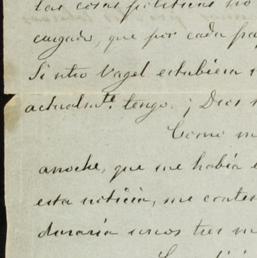 las cosas politicas no
cargado, que por cada pa
Si otro Vagel estubiera
actualmte. tengo. ¡ Dios
Como m
anoche, que me había e
esta noticia, me contes
duraría unos tres m